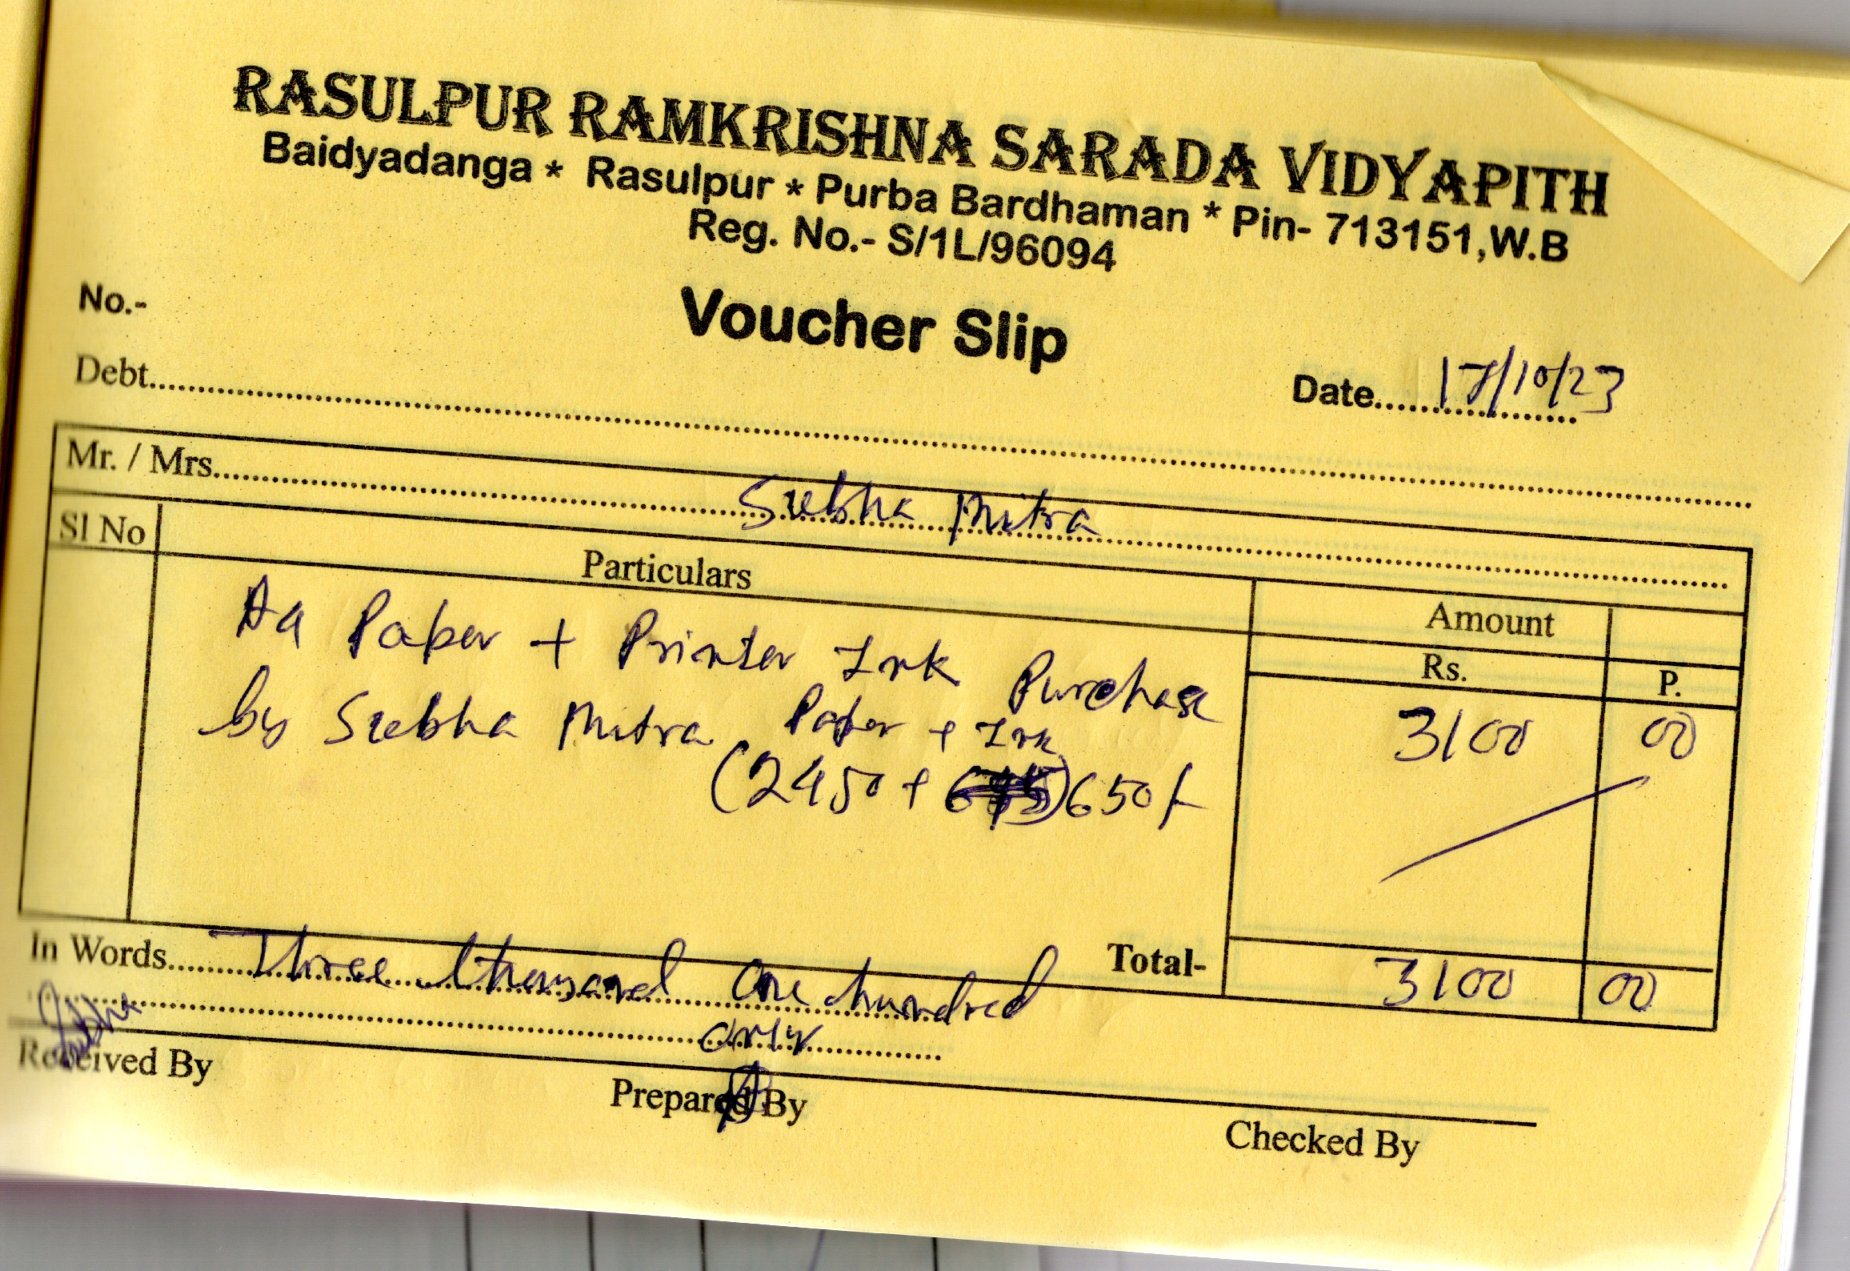 RASULPUR RAMKRISHNA SARADA VIDYAPITH
Baidyadanga * Rasulpur * Purba Bardhaman * Pin- 713151,W.B
Reg. No.- S/1L/96094
Voucher Slip
No.-
Date..... 17/10/23
Debt.....
Mr. / Mrs..... Subha Mitra
Sl No Particulars Amount
Rs. P.
A4 Paper + Printer Ink Purchase 3100 00
by Subha Mitra Paper + Ink
(2450 + ) 650/-
Total- 3100 00
In Words..... Three thousand one hundred
only
Subha
Received By Prepared By Checked By